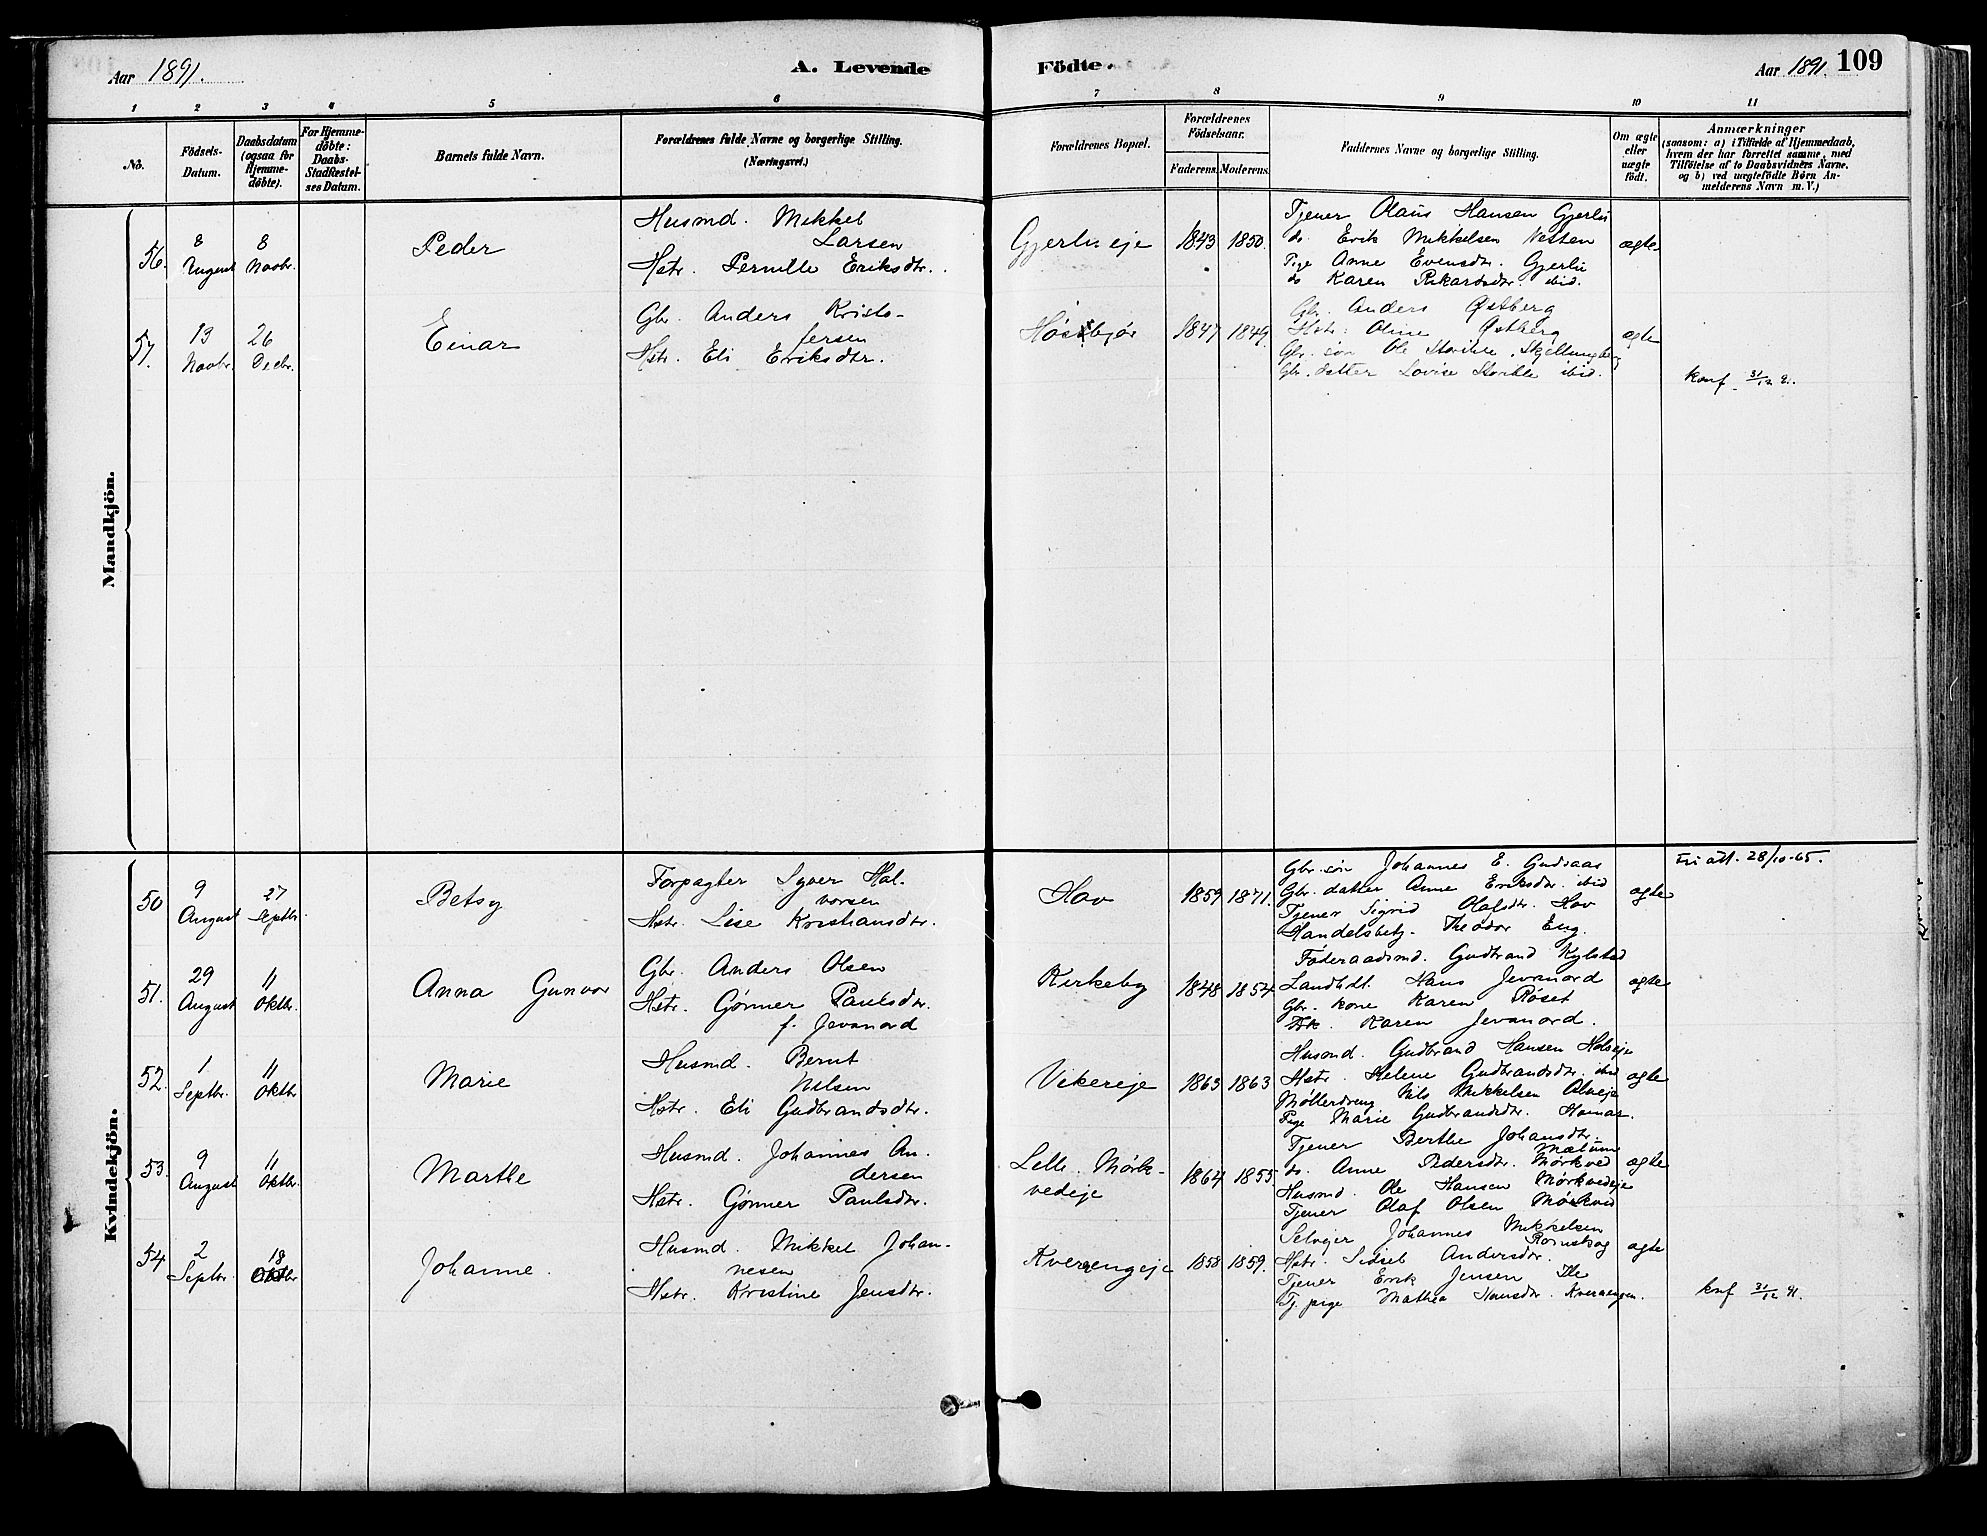 Aar 1891.
A. Levende
Födte.
Aar 1891. 109
1 2 3 4 5 6 7 8 9 10 11
No.
Födsets-
Datum.
Daabsdatum
(ogsaa for
Hjemme-
døbte).
For Hjemme-
døbte:
Daabs-
Stadfæstel-
ses Datum.
Barnets fulde Navn.
Forældrenes fulde Navne og borgerlige Stilling.
(Næringsvei.)
Forældrenes Bopæl.
Forældrenes
Födselsaar.
Faderens. Moderens.
Faddernes Navne og borgerlige Stilling.
Om ægte
eller
uægte
født.
Anmærkninger
(saasom: a) i Tilfælde af Hjemmedaab,
hvem der har forrettet samme, med
Tilföielse af to Daabsvidners Navne.
og b) ved uægtefödte Børn An-
melderens Navn m. V.)
Mandkjön.
56.
8
August
8
Novbr.
Peder
Husmd. Mikkel
Larsen
Hstr. Pernille Eriksdtr.
Gjerlueje
1843 1850.
Tjener Olaus Hansen Gjerlu
do. Erik Mikkelsen Netten
Pige Anne Evensdtr. Gjerlu
do Karen Rikardsdtr. ibid.
ægte
57.
13
Novbr.
26
Decbr.
Einar
Gbr. Anders Kristo-
fersen
Hstr. Eli Eriksdtr.
Høsbjør
1847 1849.
Gbr. Anders Østberg
Hstr. Oline Østberg
Gbr. søn Ole Storihle Skjellungberg
Gbr. datter Lovise Storihle ibid.
ægte
konf 31/12 91.
Kvindekjön.
50
9
August
27
Septbr.
Betsy
Forpagter Syver Hal-
vorsen
Hstr. Lise Kristiansdtr.
Hov
1859 1871.
Gbr. søn Johannes E. Gudsaas
Gbr. datter Anne Eriksdtr. ibid
Tjener Sigrid Olafsdtr. Hov
Handelsbetj. Theodor Eng.
ægte
Fri att. 28/10-65.
51.
29
August
11
Oktbr.
Anna Gunvor
Gbr. Anders Olsen
Hstr. Gønner Paulsdtr.
f. Jevanord
Kirkeby
1848 1854
Føderaadsmd. Gudbrand Kylstad
Landhdl. Hans Jevanord
Gbr. kone Karen Røset
Karen Jevanord.
ægte
52.
1
Septbr.
11
Oktbr
Marie
Husmd. Bernt
Nilsen
Hstr. Eli Gudbrandsdtr.
Vikereje
1863 1863
Husmd. Gudbrand Hansen Holseje
Hstr. Helene Gudbrandsdtr. ibid
Møllerdreng Nils Mikkelsen
Pige Marie Gudbrandsdtr. Hamar.
ægte
53.
9
August
11
Oktbr.
Marthe
Husmd. Johannes An-
dersen
Hstr. Gønner Paulsdtr.
Lelle. Mørk-
vedeje
1864 1855
Tjener Berthe Johansdtr.
Mælum
do. Anne Pedersdtr. Mørkved
Husmd. Ole Hansen Mørkvedeje
Tjener Olaf Olsen Mørkved
ægte
54.
2
Septbr.
18
Oktbr
Johanne.
Husmd. Mikkel Johan-
nesen
Hstr. Kristine Jensdtr.
Kverrengeje
1858 1859.
Selvejer Johannes Mikkelsen
Romskog
Hstr. Sidsel Andersdtr.
Tjener Erik Jensen Ile
Tj. pige Mathea Hansdtr. Kverrengen.
ægte
konf 31/12 91.